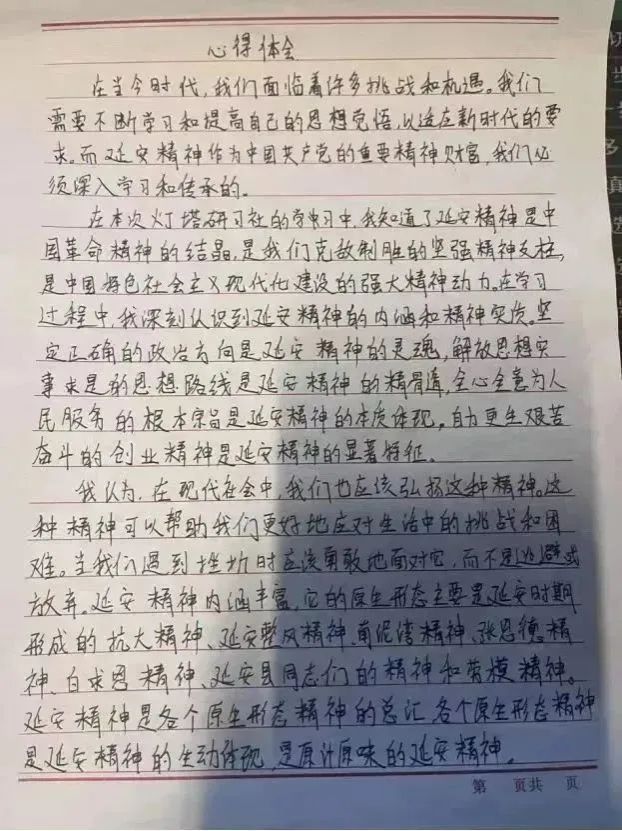 心得体会
在当今时代，我们面临着许多挑战和机遇。我们
需要不断学习和提高自己的思想觉悟，以适应新时代的要
求。而延安精神作为中国共产党的重要精神财富，我们必
须深入学习和传承的。
在本次灯塔研习社的学习中，我知道了延安精神是中
国革命精神的结晶，是我们克敌制胜的坚强精神支柱，
是中国特色社会主义现代化建设的强大精神动力。在学习
过程中，我深刻认识到延安精神的内涵和精神实质。坚
定正确的政治方向是延安精神的灵魂，解放思想实
事求是的思想路线是延安精神的精髓，全心全意为人
民服务的根本宗旨是延安精神的本质体现，自力更生艰苦
奋斗的创业精神是延安精神的显著特征。
我认为，在现代社会中，我们也应该弘扬这种精神。这
种精神可以帮助我们更好地应对生活中的挑战和困
难。当我们遇到挫折时应该勇敢地面对它，而不是逃避或
放弃。延安精神内涵丰富，它的原生形态主要是延安时期
形成的抗大精神、延安整风精神、南泥湾精神、张思德精
神、白求恩精神、延安县同志们的精神和劳模精神。
延安精神是各个原生形态精神的总汇，各个原生形态精神
是延安精神的生动体现，是原汁原味的延安精神。
第 页共 页